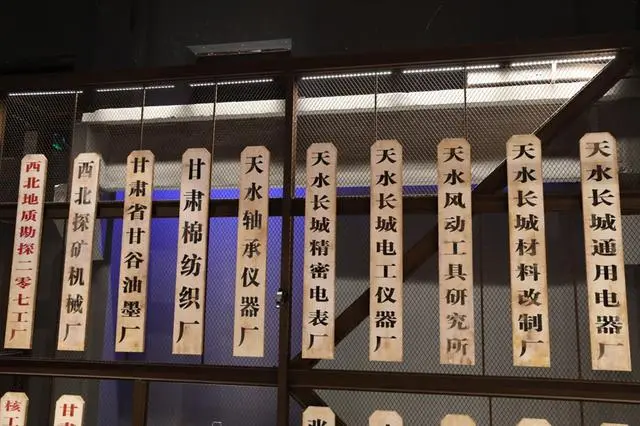 西北地质勘探一零七工厂
西北探矿机械厂
甘肃省甘谷油墨厂
甘肃棉纺织厂
天水轴承仪器厂
天水长城精密电表厂
天水长城电工仪器厂
天水风动工具研究所
天水长城材料改制厂
天水长城通用电器厂
核工
甘肃